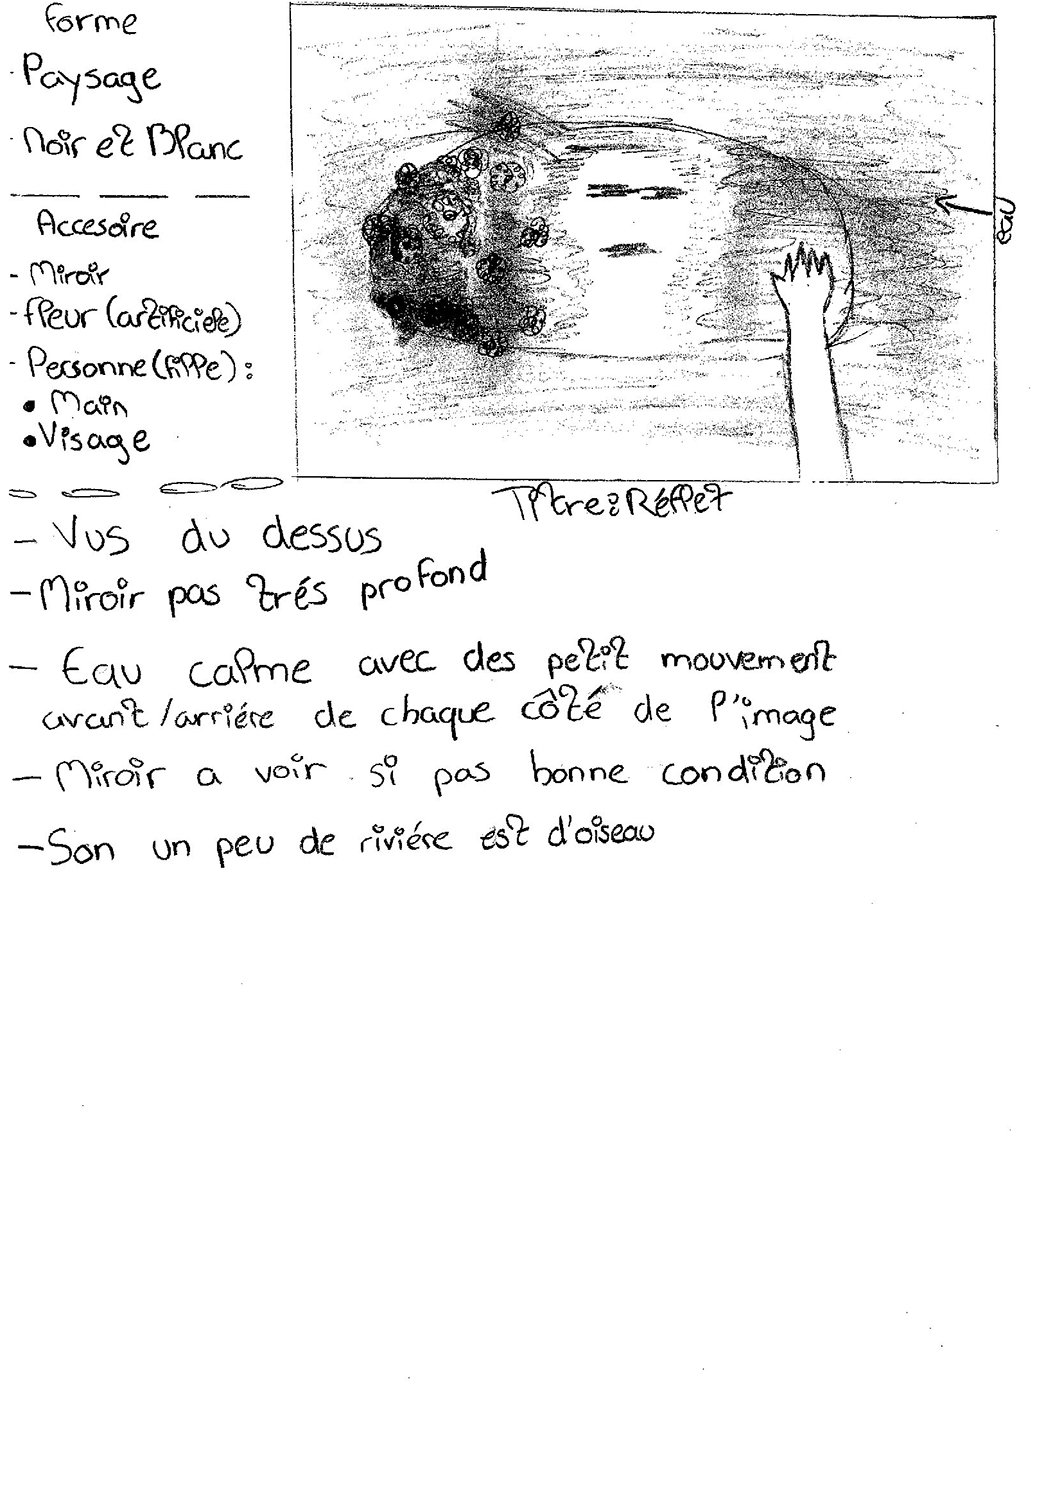 forme
· Paysage
· Noir et Blanc
Accesoire
- Miroir
- fleur (artificiele)
- Personne (fille) :
• Main
• Visage
eau
Titre : Réflet
- Vus du dessus
- Miroir pas trés profond
- Eau calme avec des petit mouvement
avant/arriére de chaque côté de l'image
- Miroir a voir si pas bonne condition
- Son un peu de riviére est d'oiseau